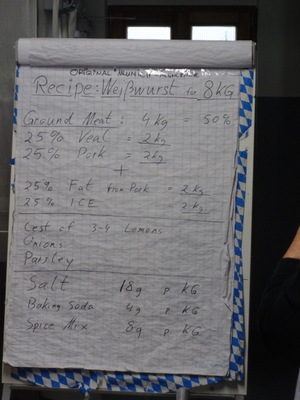 ORIGINAL MUNICH
Recipe: Weißwurst for 8KG
Ground Meat: 4kg = 50%
25% Veal = 2kg
25% Pork = 2kg
+
25% Fat from Pork = 2kg
25% ICE = 2kg
Cest of 3-4 Lemons
Onions
Parsley
Salt 18g p KG
Baking Soda 4g p KG
Spice Mix 8g p KG